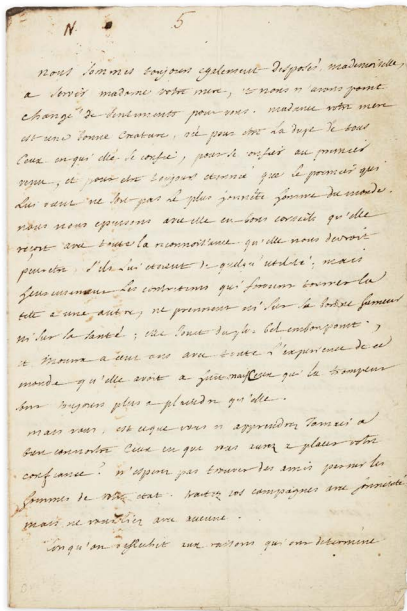 N 5
nous sommes toujours egalement disposés, mademoiselle,
a servir madame votre mere, & nous n'avons point
changé de sentiments pour vous. madame votre mere
est une bonne creature, née pour etre la dupe de tous
ceux en qui elle se confie, pour se confier au premier
venu, et pour etre toujours etonnée que le premier qui
lui vient ne soit pas le plus honnête homme du monde.
nous nous epuisons avec elle en bons conseils qu'elle
reçoit avec toute la reconnoissance qu'elle nous devroit
peut etre s'ils lui etoient de quelqu'utilité; mais
heureusement les contretems qui feroient tourner la
tete a une autre, ne prennent ni sur la bonne humeur
ni sur la santé; elle jouit du plus bel embonpoint;
et mourra a cent ans avec toute l'experience de ce
monde qu'elle avoit a sept. Ceux qui la trompent
sont toujours plus a plaindre qu'elle.
mais vous, est ce que vous n'apprendrez jamais a
connoitre ceux en qui vous avez a placer votre
confiance? n'esperez pas trouver des amis parmi les
hommes de votre etat. traitez vos compagnes avec honneteté
mais ne vous liez avec aucune.
lorsqu'on reflechit aux raisons qui ont determiné